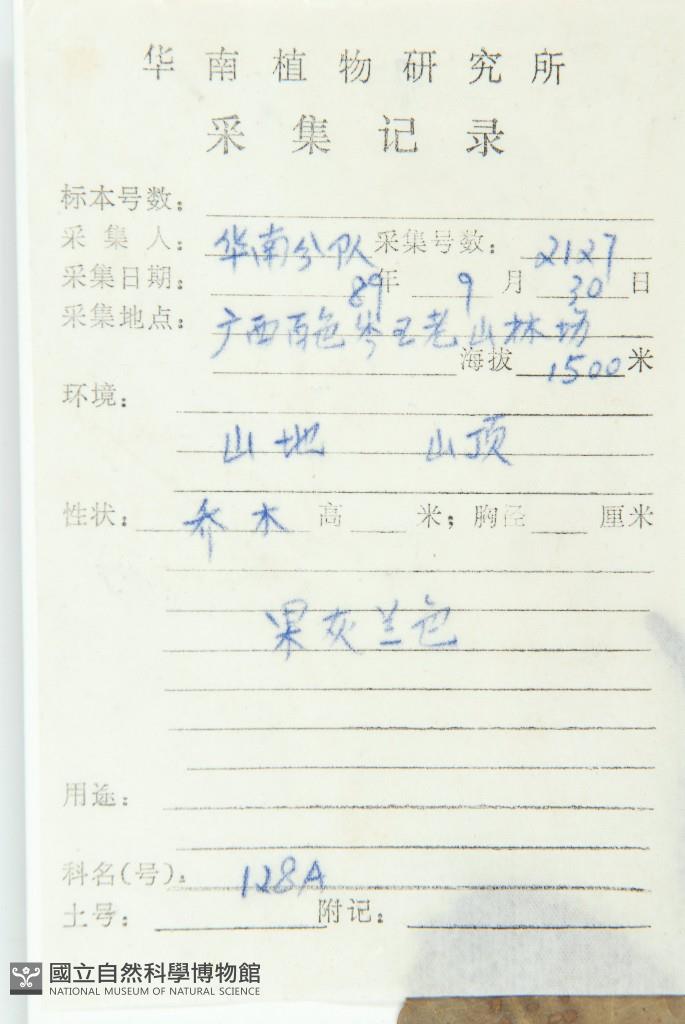 华南植物研究所
采集记录
标本号数：
采集人：华南分队 采集号数：2127
采集日期：89年 9月 30日
采集地点：广西百色岑王老山林场
海拔 1500 米
环境：
山地 山顶
性状：乔木 高 米；胸径 厘米
果灰兰色
用途：
科名(号)：128A
土号： 附记：
國立自然科學博物館
NATIONAL MUSEUM OF NATURAL SCIENCE